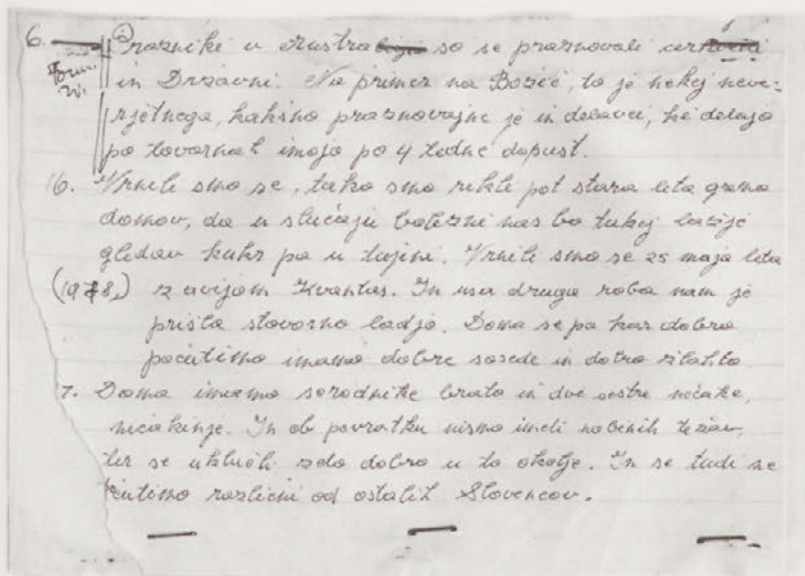 6. Prazniki v Austra so se praznovali cerkveni
in Državni. Na primer na Božić, to je nekej neve-
rjetnega, kakšno praznovajne je in delavci, ke delajo
po tovarnah imajo po 4 tadne dopust.
16. Vrnili smo se, tako smo rekli pot stara leta gremo
domov, da u slućaju bolezni nas bo tukej lažje
gledav kukr pa u tujini. Vrnili smo se 25 maja leta
(1978) z avijom Kvantas. In usa druga roba nam je
prišla stovorno ladjo. Doma se pa kar dobro
poćutimo imamo dobre sosede in dobro žlahto.
7. Doma imamo sorodnike brata in dvé sestre nećake,
nećakinje. In ob povratku nismo imeli nobenih težav,
ter se uključili zelo dobro u to okolje. In se tudi ne
ćutimo razlićni od ostalih Slovencov.